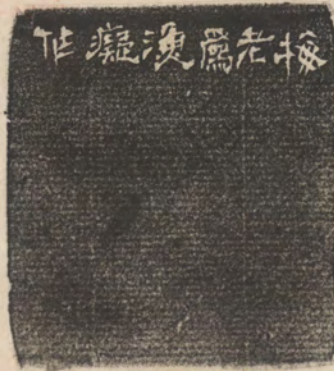 梅老爲漁癡作